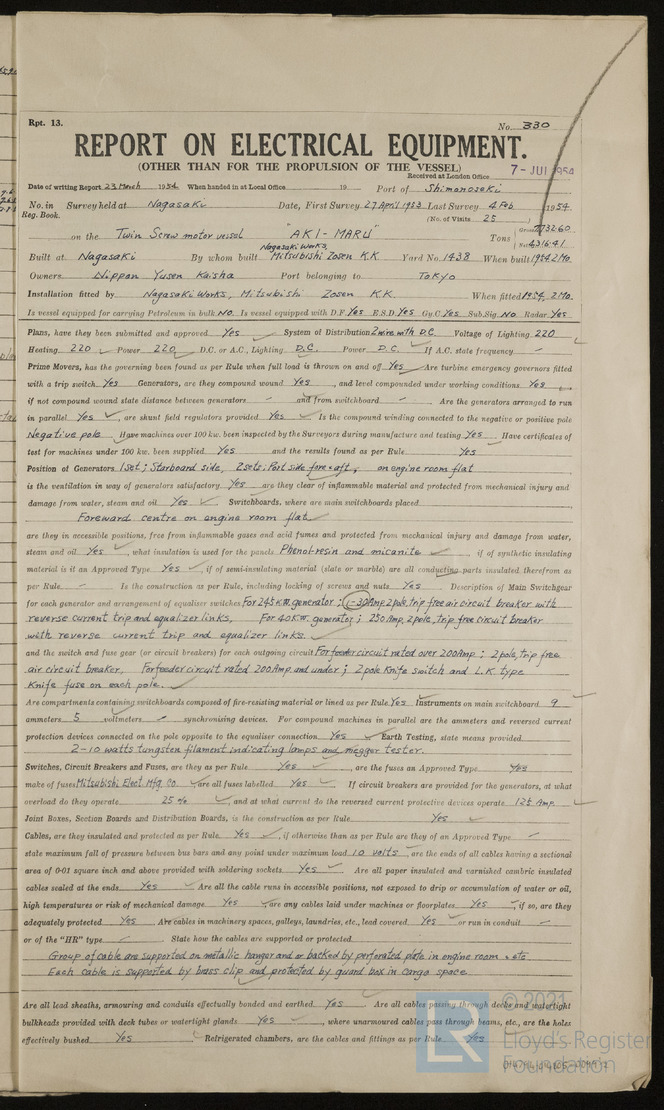 Rpt. 13.
No. 330
REPORT ON ELECTRICAL EQUIPMENT.
(OTHER THAN FOR THE PROPULSION OF THE VESSEL)
Received at London Office 7- JUL 1954
Date of writing Report 23 March 1954 When handed in at Local Office 19 Port of Shimonoseki
No. in Survey held at Nagasaki Date, First Survey 27 April 1953 Last Survey 4 Feb 1954
Reg. Book. (No. of Visits 25 )
on the Twin Screw motor vessel "AKI-MARU" Tons Gross 7732.60
Net 4316.41
Built at Nagasaki By whom built Nagasaki Works, Mitsubishi Zosen K.K. Yard No. 1438 When built 1954 2 Mo.
Owners Nippon Yusen Kaisha Port belonging to Tokyo
Installation fitted by Nagasaki Works, Mitsubishi Zosen K.K. When fitted 1954, 2 Mo.
Is vessel equipped for carrying Petroleum in bulk NO. Is vessel equipped with D.F. Yes E.S.D. Yes Gy.C. Yes Sub.Sig. NO Radar Yes
Plans, have they been submitted and approved Yes System of Distribution 2 wire with D.C. Voltage of Lighting 220
Heating 220 Power 220 D.C. or A.C., Lighting D.C. Power D.C. If A.C. state frequency -
Prime Movers, has the governing been found as per Rule when full load is thrown on and off Yes Are turbine emergency governors fitted
with a trip switch Yes Generators, are they compound wound Yes, and level compounded under working conditions Yes,
if not compound wound state distance between generators - and from switchboard - Are the generators arranged to run
in parallel Yes, are shunt field regulators provided Yes Is the compound winding connected to the negative or positive pole
Negative pole Have machines over 100 kw. been inspected by the Surveyors during manufacture and testing Yes Have certificates of
test for machines under 100 kw. been supplied Yes and the results found as per Rule Yes
Position of Generators 1 set; Starboard side, 2 sets; Port side fore & aft, on engine room flat
is the ventilation in way of generators satisfactory Yes are they clear of inflammable material and protected from mechanical injury and
damage from water, steam and oil Yes Switchboards, where are main switchboards placed
Foreward centre on engine room flat
are they in accessible positions, free from inflammable gases and acid fumes and protected from mechanical injury and damage from water,
steam and oil Yes, what insulation is used for the panels Phenol-resin and micanite if of synthetic insulating
material is it an Approved Type Yes, if of semi-insulating material (slate or marble) are all conducting parts insulated therefrom as
per Rule - Is the construction as per Rule, including locking of screws and nuts Yes Description of Main Switchgear
for each generator and arrangement of equalizer switches For 245 K.W. generator; 1-30 Amp. 2 pole, trip free air circuit breaker with
reverse current trip and equalizer links, For 40 K.W. generator; 250 Amp. 2 pole, trip free circuit breaker
with reverse current trip and equalizer links.
and the switch and fuse gear (or circuit breakers) for each outgoing circuit For feeder circuit rated over 200 Amp; 2 pole, trip free
air circuit breaker, For feeder circuit rated 200 Amp. and under; 2 pole Knife switch and L.K. type
Knife fuse on each pole.
Are compartments containing switchboards composed of fire-resisting material or lined as per Rule Yes Instruments on main switchboard 9
ammeters 5 voltmeters - synchronising devices. For compound machines in parallel are the ammeters and reversed current
protection devices connected on the pole opposite to the equaliser connection Yes Earth Testing, state means provided
2-10 watts tungsten filament indicating lamps and megger tester.
Switches, Circuit Breakers and Fuses, are they as per Rule Yes, are the fuses an Approved Type Yes
make of fuses Mitsubishi Elect Mfg Co. are all fuses labelled Yes If circuit breakers are provided for the generators, at what
overload do they operate 25 %, and at what current do the reversed current protective devices operate 125 Amp.
Joint Boxes, Section Boards and Distribution Boards, is the construction as per Rule Yes
Cables, are they insulated and protected as per Rule Yes, if otherwise than as per Rule are they of an Approved Type -
state maximum fall of pressure between bus bars and any point under maximum load 10 volts, are the ends of all cables having a sectional
area of 0·01 square inch and above provided with soldering sockets Yes Are all paper insulated and varnished cambric insulated
cables sealed at the ends Yes Are all the cable runs in accessible positions, not exposed to drip or accumulation of water or oil,
high temperatures or risk of mechanical damage Yes are any cables laid under machines or floorplates Yes, if so, are they
adequately protected Yes Are cables in machinery spaces, galleys, laundries, etc., lead covered Yes or run in conduit -
or of the "HR" type - State how the cables are supported or protected
Group of cable are supported on metallic hanger and or backed by perforated plate in engine room, etc
Each cable is supported by brass clip and protected by guard box in cargo space
Are all lead sheaths, armouring and conduits effectually bonded and earthed Yes Are all cables passing through decks and watertight
bulkheads provided with deck tubes or watertight glands Yes, where unarmoured cables pass through beams, etc., are the holes
effectively bushed Yes Refrigerated chambers, are the cables and fittings as per Rule Yes
© 2021
LR
Lloyd's Register
Foundation